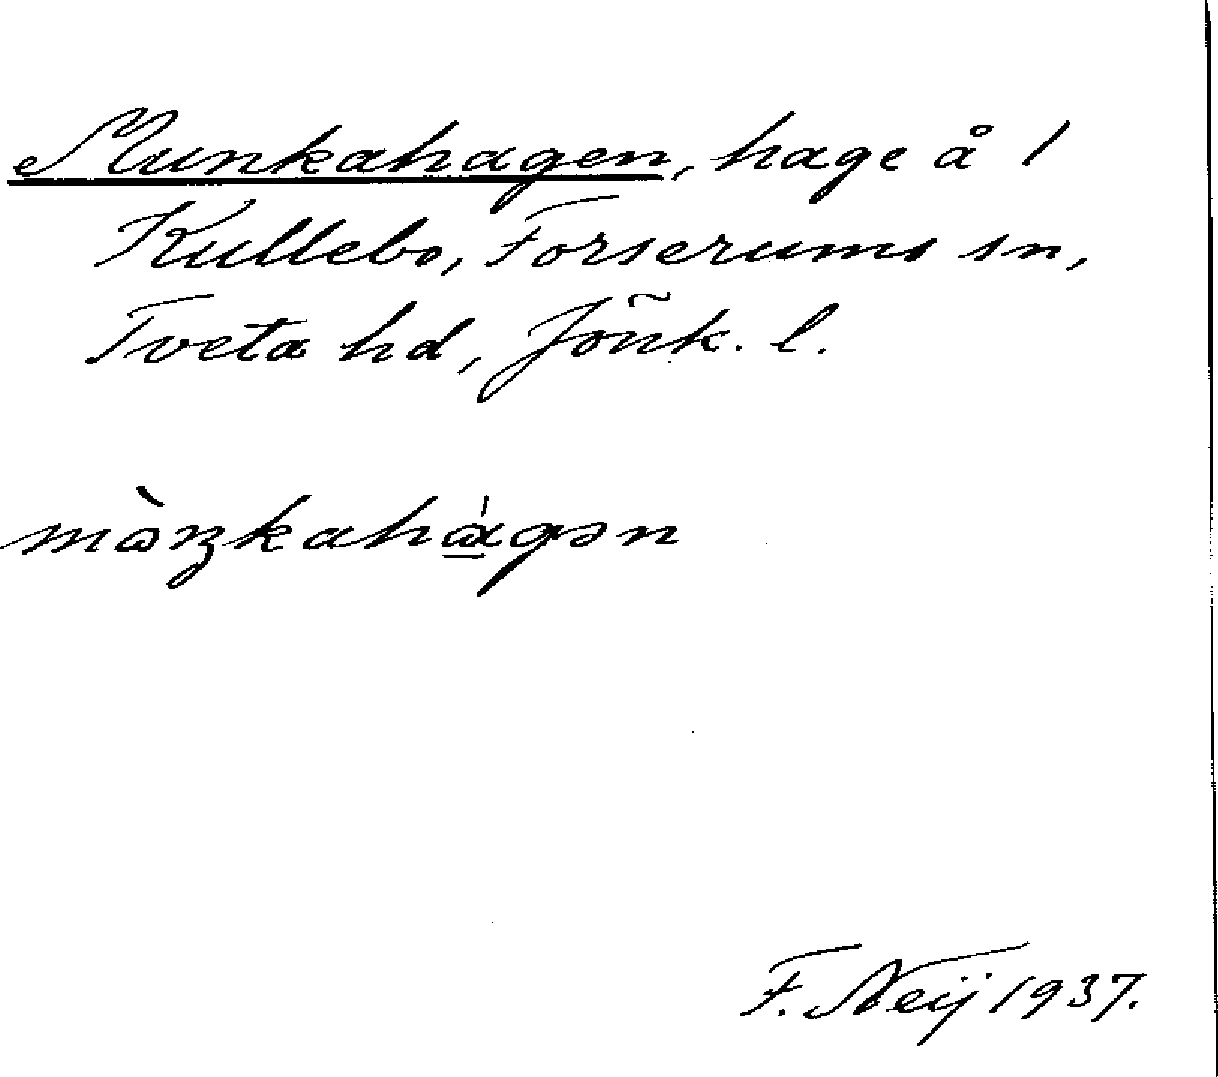 Munkahagen, hage å 1
Kullebo, Forserums sn,
Tveta hd, Jönk. l.
F. Neij 1937.